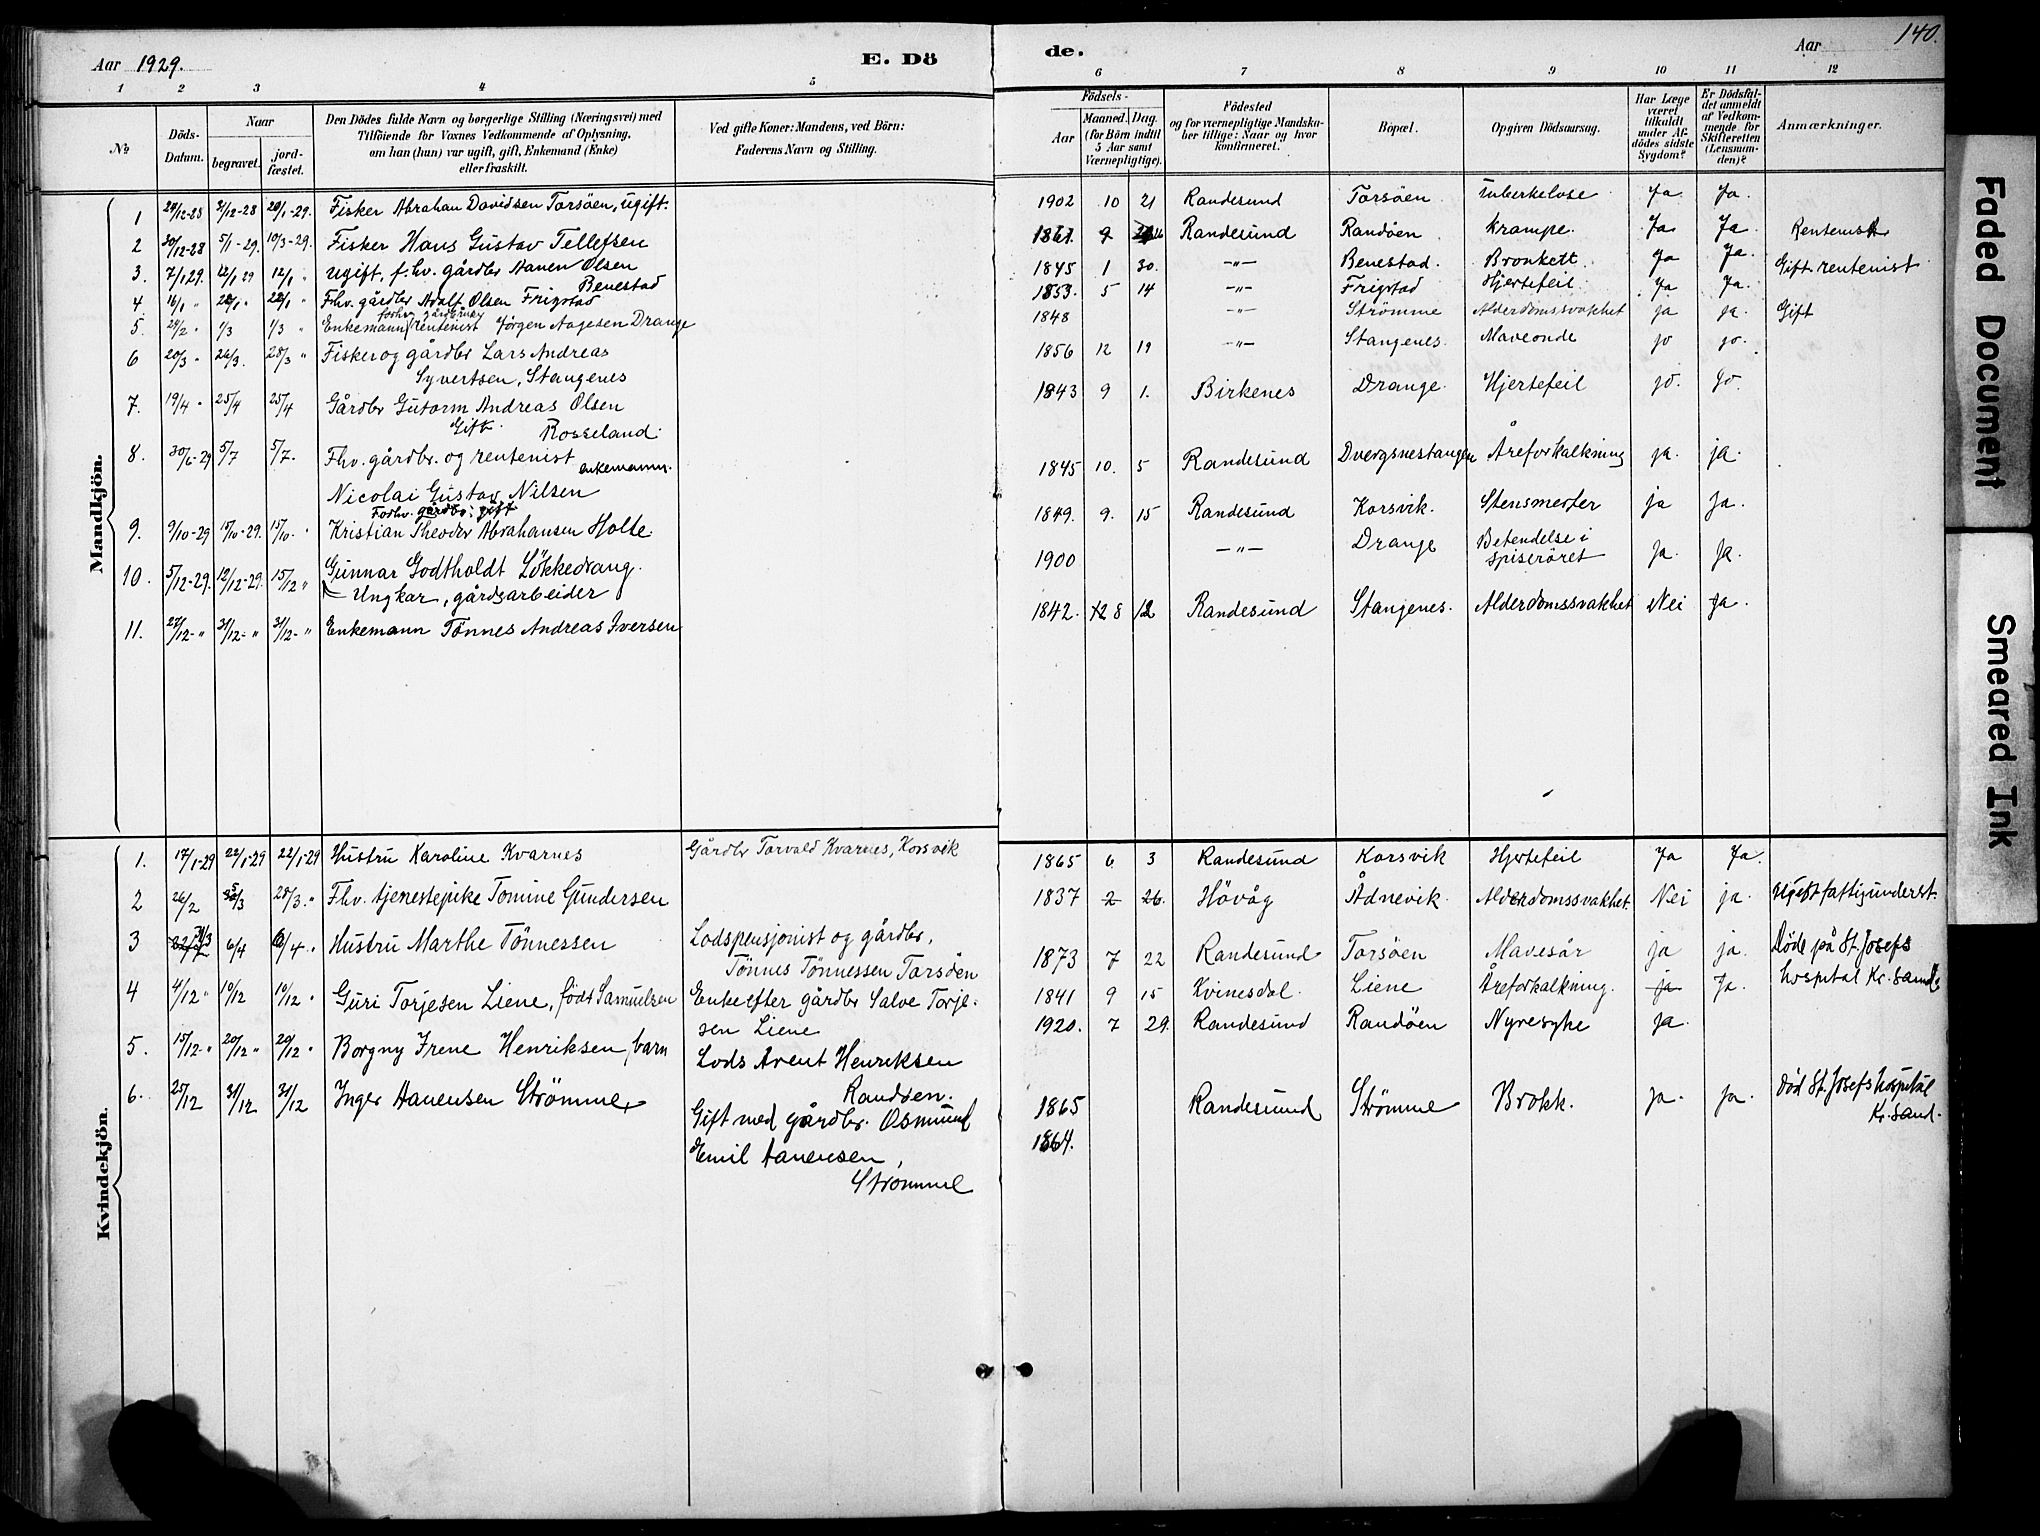 140.
Aar 1929. E. Dö de. Aar
1 2 3 4 5 6 7 8 9 10 11 12
№ Döds-Datum. Naar begravet. jord-fæstet.
Den Dödes fulde Navn og borgerlige Stilling (Næringsvei) med
Tilföiende for Voxnes Vedkommende af Oplysning,
om han (hun) var ugift, gift, Enkemand (Enke)
eller fraskilt.
Ved gifte Koner: Mandens, ved Börn:
Faderens Navn og Stilling.
Födsels-
Aar Maaned. Dag.
(for Börn indtil 5 Aar samt Værnepligtige).
Födested
og for værnepligtige Mandskaber tillige: Naar og hvor konfirmeret.
Bopæl. Opgiven Dödsaarsag.
Har Læge været tilkaldt under Afdödes sidste Sygdom?
Er Dödsfaldet anmeldt af Vedkommende for Skifteretten (Lensmanden)?
Anmærkninger.
Mandkjön.
1 28/12-28 31/12-28 20/1-29. Fisker Abrahan Davidsen Torsöen, ugift. 1902 10 21 Randesund Torsöen tuberkelose Ja Ja.
2 30/12-28 5/1-29. 10/3-29. Fisker Hans Gustav Tellefsen 1861. 9 Randesund Randöen Krampe. Ja Ja. Rentenist
3. 7/1 29. 12/1 29 12/1 " Ugift. f.hv. gårdbr Aanen Olsen Benestad 1845 1 30. -"- Benestad. Bronkett. Ja Ja. Gift rentenist
4. 16/1 " 22/1 " 22/1 " Fhv. gårdbr Adolf Olsen Frigstad 1853. 5 14 -"- Frigstad Hjertefeil Ja Ja.
5. 24/2 " 1/3 1/3 " Enkemann forhv. gårdbruk. rentenist Jörgen Aagesen Drange 1848 -"- Strömme Alderdomssvakhet ja ja. Gift
6 20/3 " 26/3. 28/3 " Fisker og gårdbr Lars Andreas
Syvertsen, Stangenes 1856 12 19 -"- Stangenes. Maveonde jo jo.
7. 19/4 " 25/4 25/4 Gårdbr Gutorm Andreas Olsen
Gift. Rosseland. 1843 9 1. Birkenes Drange. Hjertefeil jo. jo.
8. 30/6-29 5/7 5/7. Fhv. gårdbr. og rentenist enkemann.
Nicolai Gustav Nilsen 1845 10. 5 Randesund Dvergsnestangen Åreforkalkning ja. ja.
Forhv. gårdbr: gift
9. 9/10-29 15/10-29. 15/10. " Kristian Theodor Abrahansen Holte. 1849. 9. 15 Randesund Korsvik. Stensmerter ja Ja.
10. 5/12-29. 12/12-29. 15/12 " Gunnar Godtholdt Lökkedrang.
Ungkar, gårdsarbeider 1900 -"- Drange Betendelse i spiseröret Ja. Ja.
11. 27/12-" 31/12-" 31/12-" Enkemann Tönnes Andreas Iversen 1842. 12 8 12 Randesund Stangenes. Alderdomssvakhet Nei Ja.
Kvindekjön.
1. 17/1-29 22/1-29 22/1-29 Hustru Karoline Kvarnes Gårdbr Torvald Kvarnes, Korsvik 1865 6 3 Randesund Korsvik Hjertefeil Ja Ja.
2 26/2 5/3 28/3. " Fhv. tjenestepike Tomine Gundersen 1837 2 26. Hövåg Ådnevik. Alderdomssvakhet. Nei ja. Ugift fattigunderst.
3 31/3 6/4 6/4. " Hustru Marthe Tönnessen Lodspensjonist og gårdbr.
Tönnes Tönnessen Torsöen 1873 7 22 Randesund Torsöen Mavesår ja ja. Död på St. Josefs
hospital Kr.sand.
4 4/12 " 10/12 10/12 " Guri Torjesen Liene, födt Samuelsen Enke efter gårdbr Salve Torje-
sen Liene 1841 9 15 Kvinesdal. Liene Åreforkalkning. ja Ja.
5. 15/12 " 20/12 " 20/12 " Borgny Irene Henriksen, barn Lods Arent Henriksen
Randöen. 1920. 7 29. Randesund Randöen Nyresyke ja.
6. 25/12 31/12 31/12 Inger Aanensen Strömme, Gift med gårdbr. Osmund
Emil Aanensen,
Strömme 1865 Randesund Strömme Brokk. Ja. Ja. Död St. Josefs hospital
Kr.sand.
1864.
Faded Document
Smeared Ink